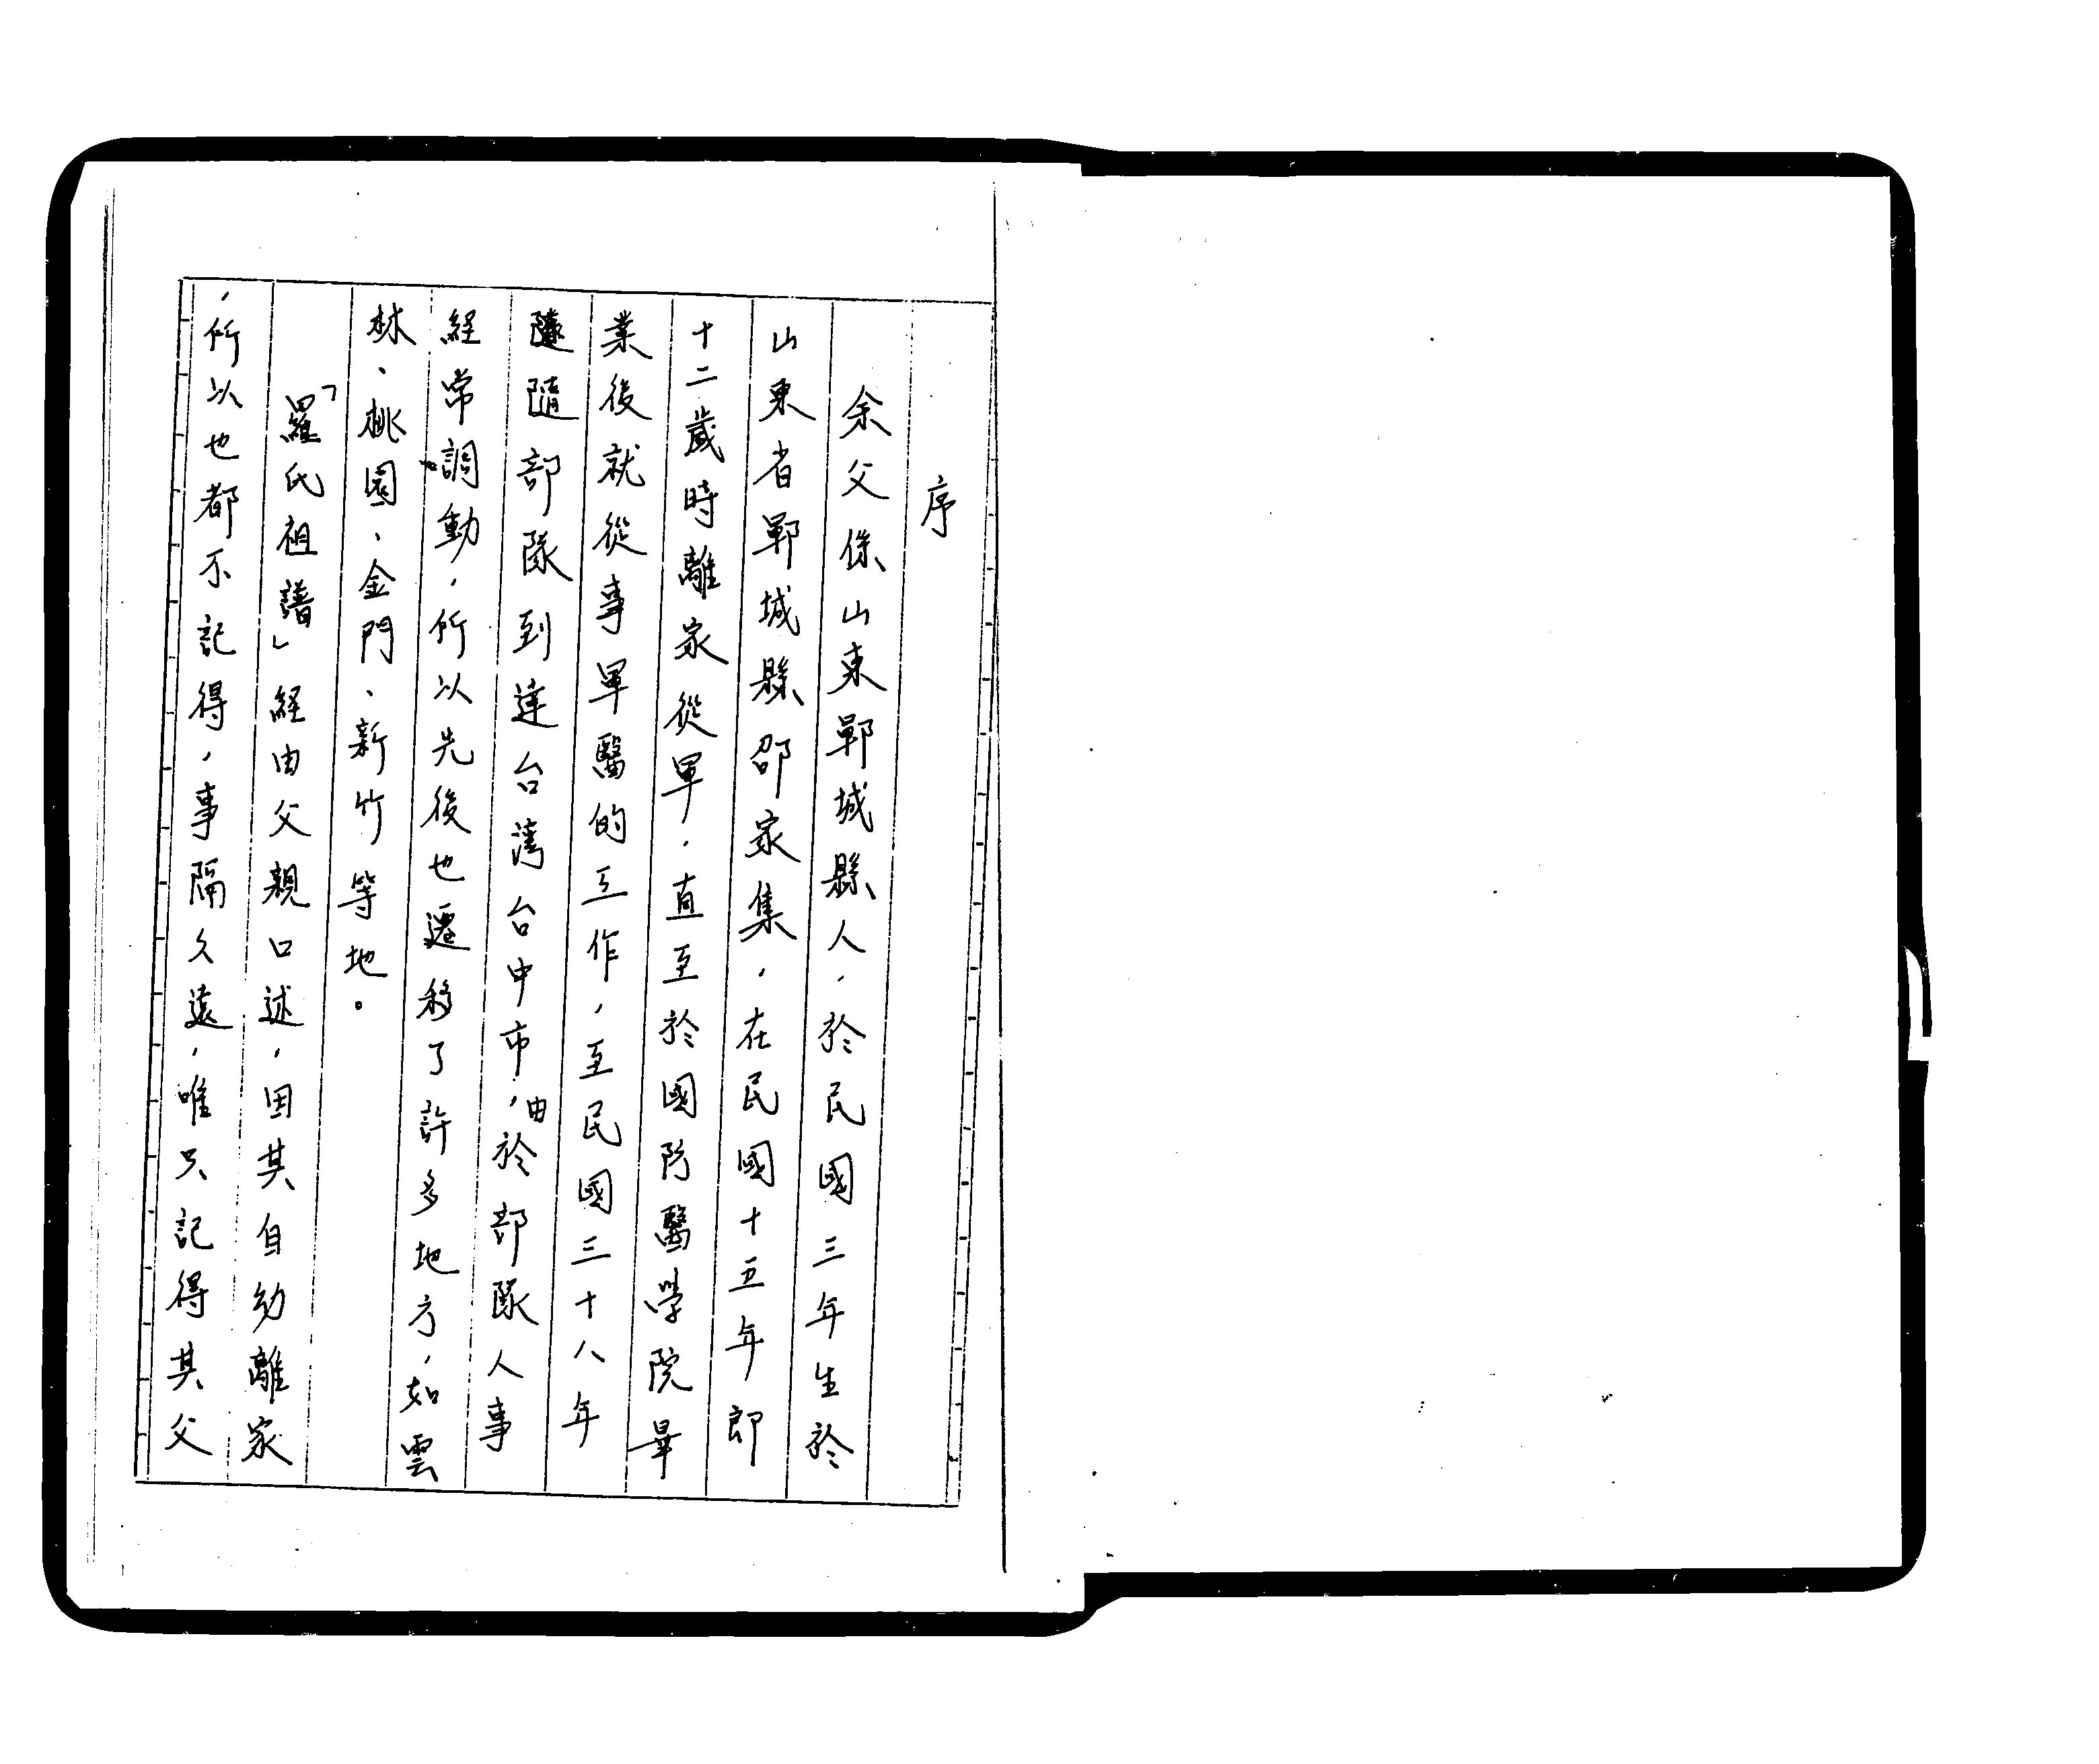 序
余父係山東鄆城縣人，於民國三年生於
山東省鄆城縣邵家集，在民國十五年即
十二歲時離家從軍，直至於國防醫學院畢
業後就從事軍醫的工作，至民國三十八年
隨部隊到達台灣台中市，由於部隊人事
經常調動，所以先後也遷移了許多地方，如雲
林、桃園、金門、新竹等地。
「羅氏祖譜」經由父親口述，因其自幼離家
，所以也都不記得，事隔久遠，唯只記得其父